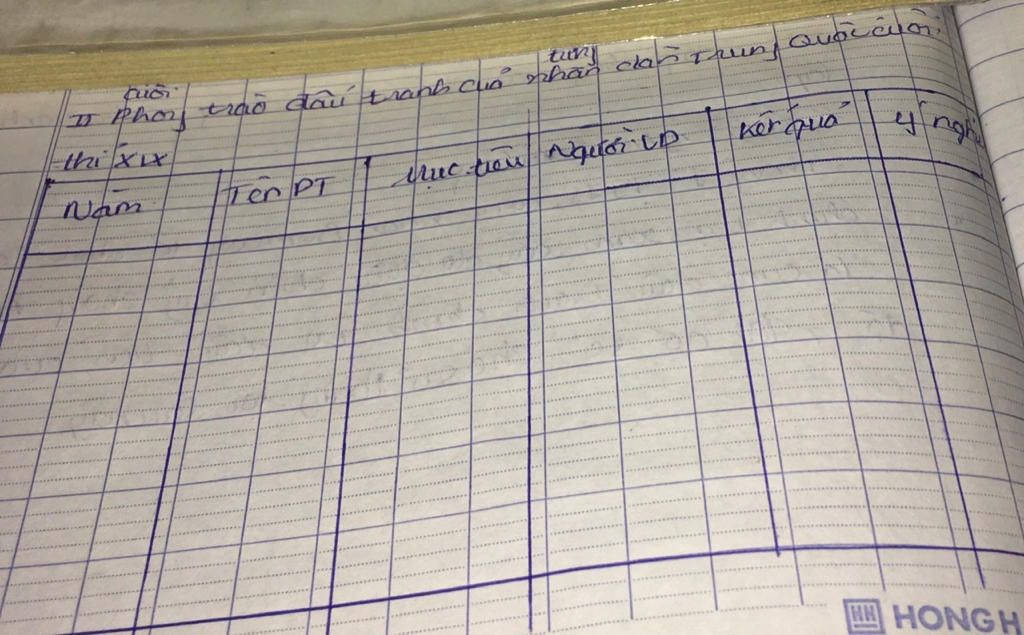 cuối
tung
II Phong trào đấu tranh của nhân dân Trung Quốc cuối
thỉ XIX
Năm
Tên PT
Mục tiêu
Người LD
Kết quả
ý nghĩ
HH HONG H